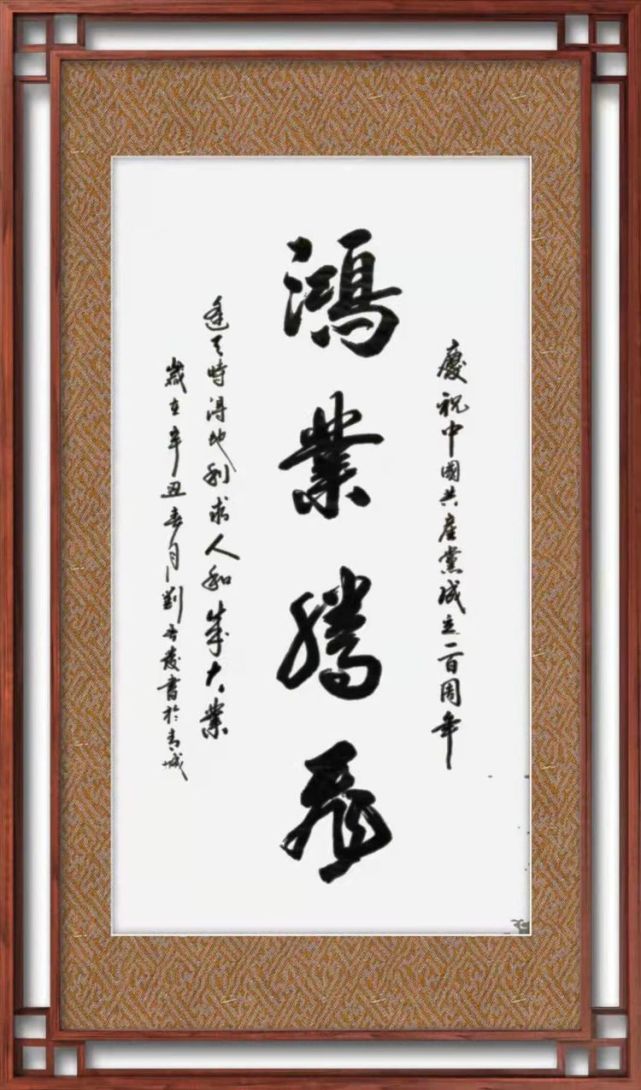 慶祝中國共產黨成立一百周年
鴻業騰飛
逢天時得地利求人和成大業
歲在辛丑春月劉 發書於青城